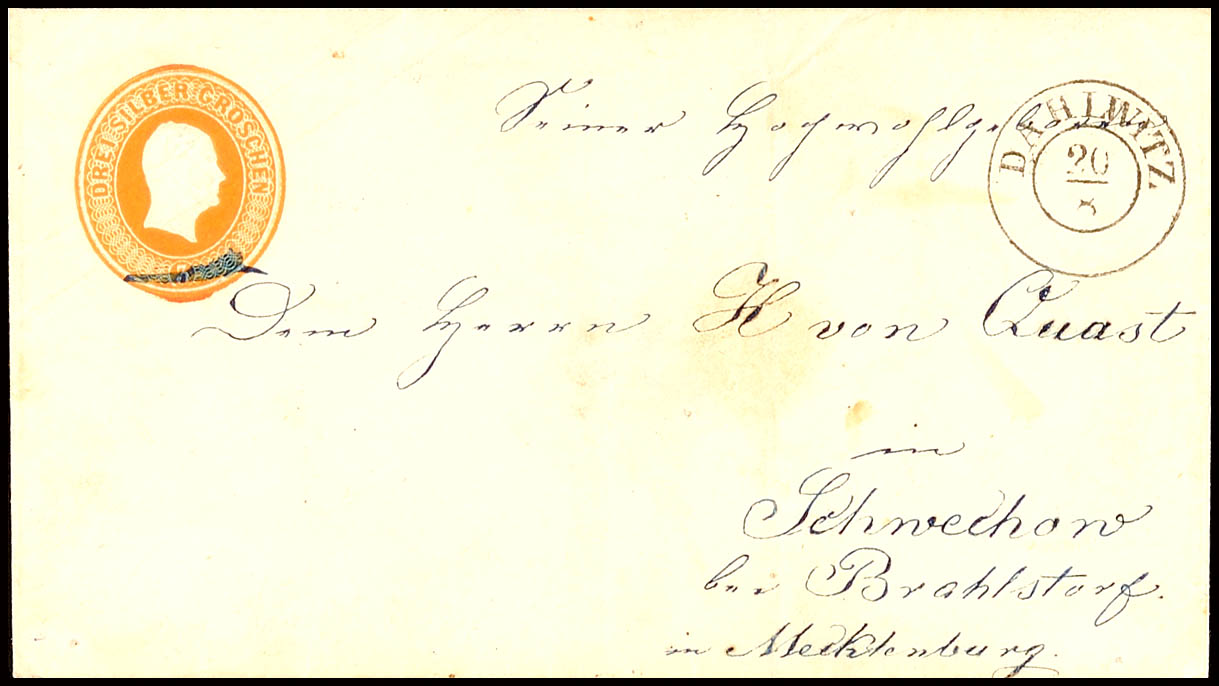 DREI SILBER GROSCHEN
Seiner Hochwohlgeboren
DAHLWITZ
20
8
Dem Herrn H von Quast
in
Schwechow
bei Brahlstorf.
in Mecklenburg.